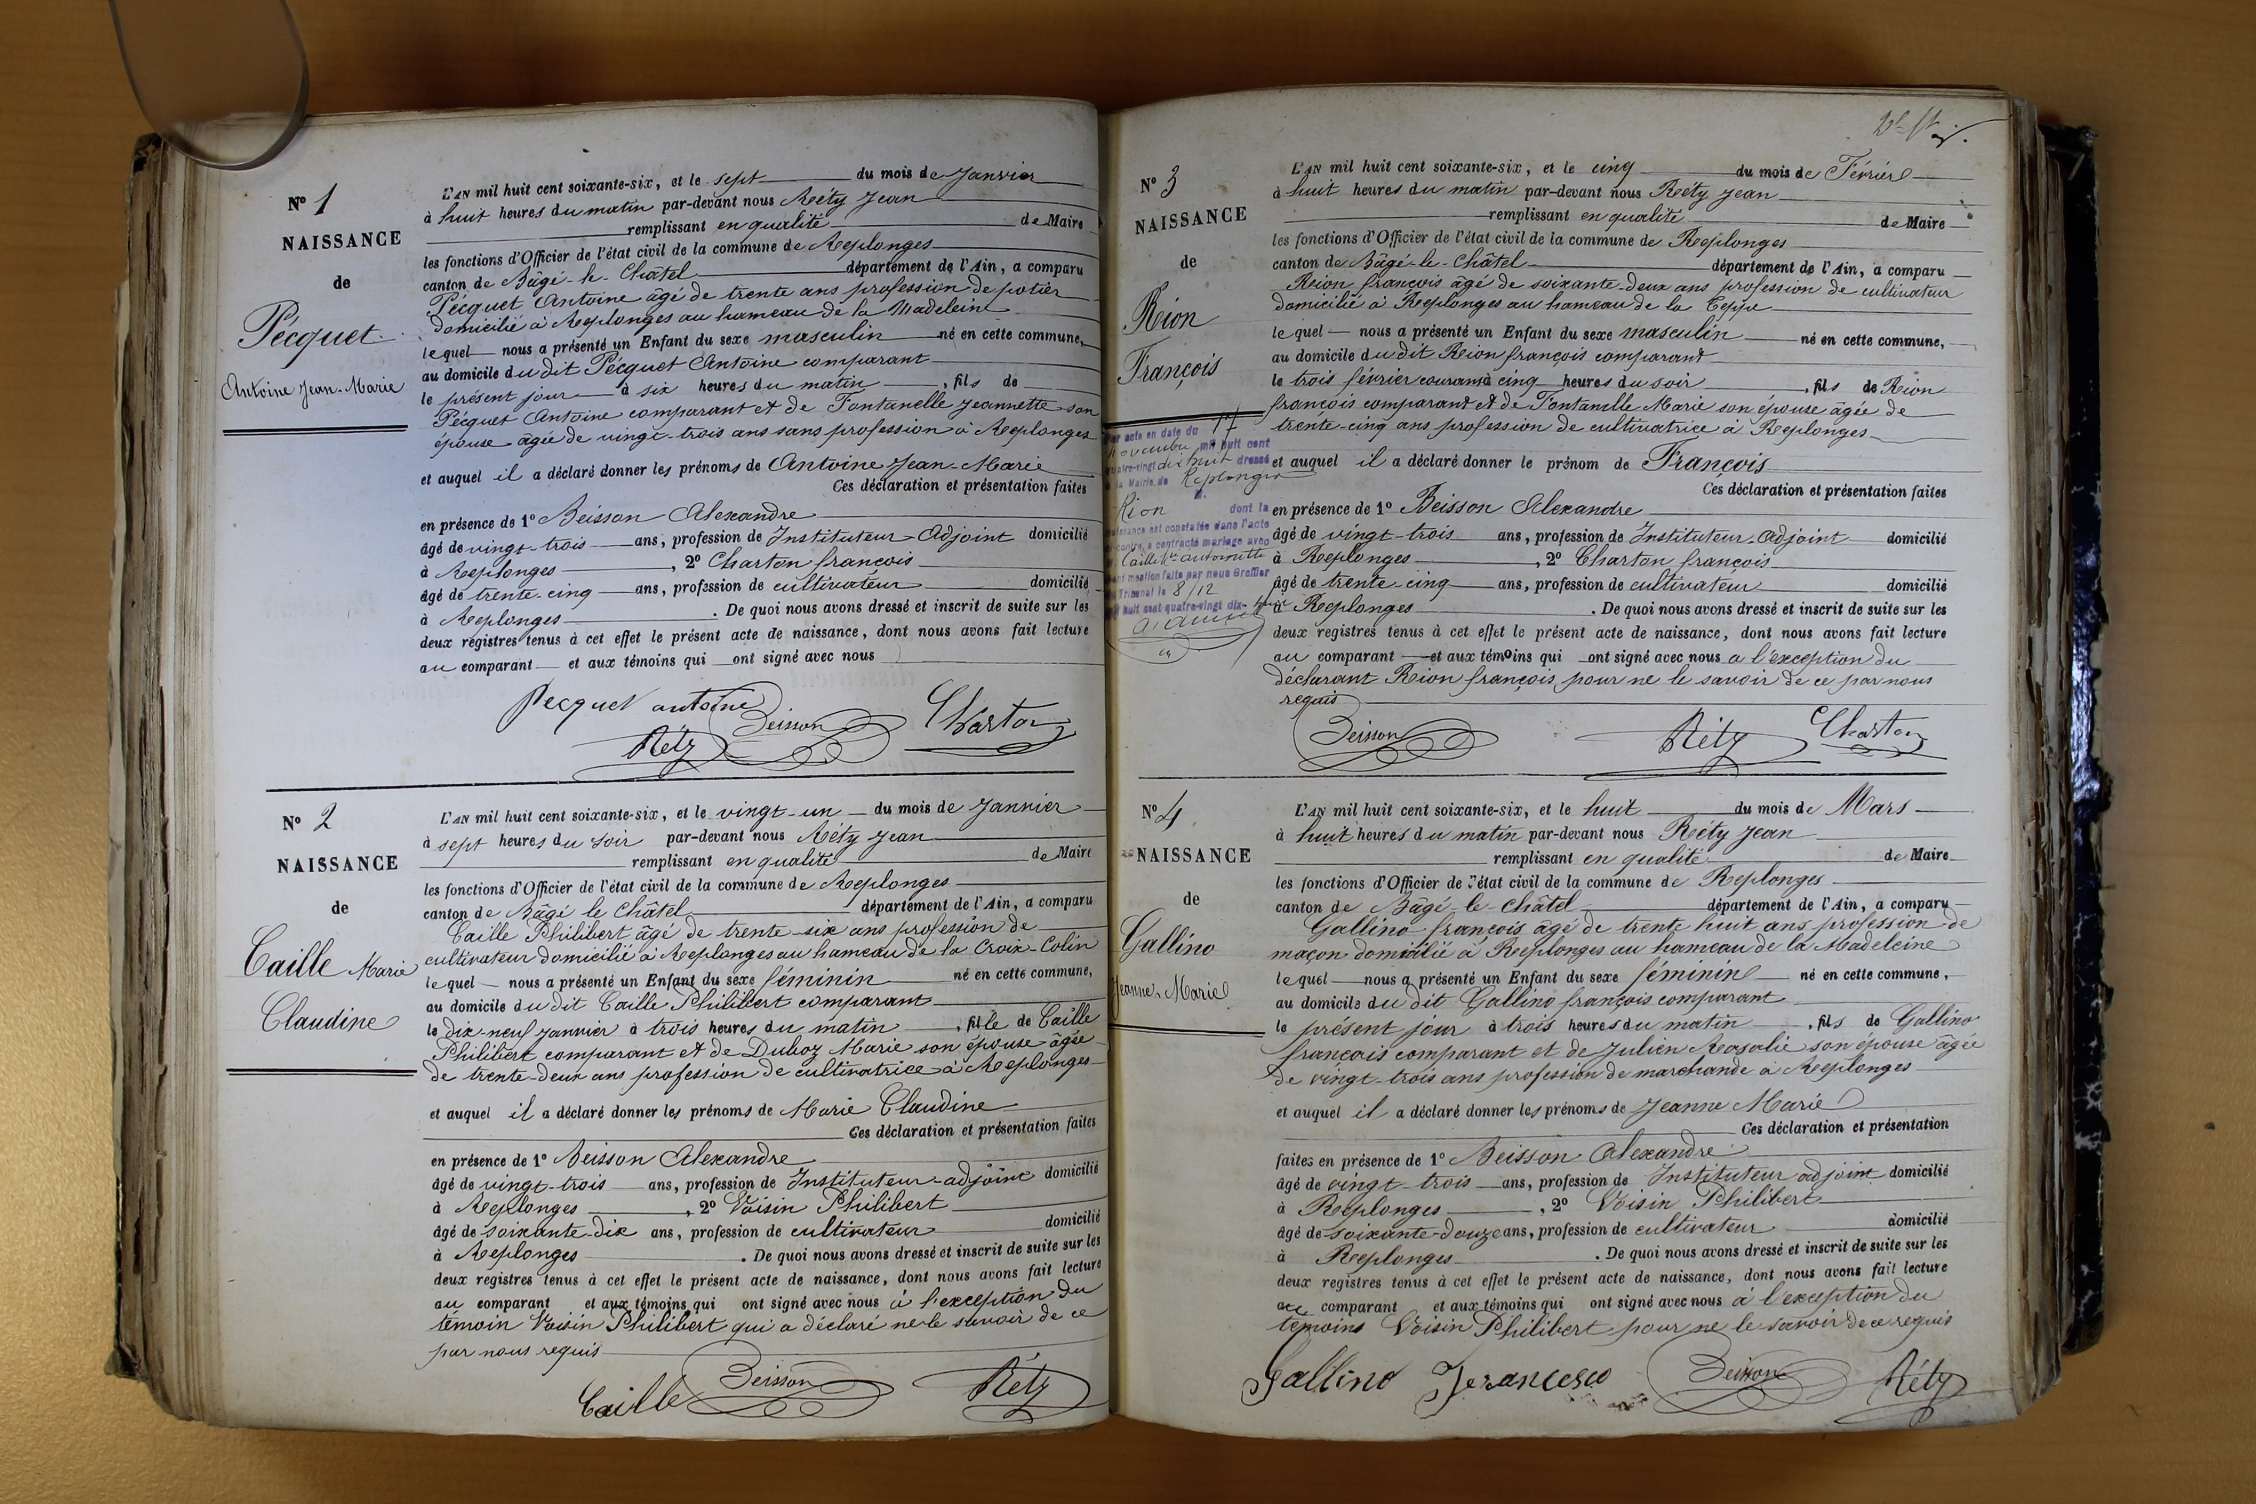 Nº 1
NAISSANCE
de
Pécquet
Antoine Jean-Marie
L'AN mil huit cent soixante-six, et le sept du mois de Janvier
à huit heures du matin par-devant nous Réty Jean
remplissant en qualité de Maire
les fonctions d'Officier de l'état civil de la commune de Replonges
canton de Bâgé-le-Châtel département de l'Ain, a comparu
Pécquet Antoine âgé de trente ans profession de potier
domicilié à Replonges au hameau de la Madeleine
lequel nous a présenté un Enfant du sexe masculin né en cette commune,
au domicile du dit Pécquet Antoine comparant
le présent jour à six heures du matin, fils de
Pécquet Antoine comparant et de Fontanelle Jeannette son
épouse âgée de vingt-trois ans sans profession à Replonges
et auquel il a déclaré donner les prénoms de Antoine Jean-Marie
Ces déclaration et présentation faites
en présence de 1º Beisson Alexandre
âgé de vingt-trois ans, profession de Instituteur-Adjoint domicilié
à Replonges, 2º Charton françois
âgé de trente-cinq ans, profession de cultivateur domicilié
à Replonges. De quoi nous avons dressé et inscrit de suite sur les
deux registres tenus à cet effet le présent acte de naissance, dont nous avons fait lecture
au comparant et aux témoins qui ont signé avec nous
Pecquet antoine
Beisson
Charton
Réty
Nº 2
NAISSANCE
de
Caille Marie
Claudine
L'AN mil huit cent soixante-six, et le vingt-un du mois de Janvier
à sept heures du soir par-devant nous Réty Jean
remplissant en qualité de Maire
les fonctions d'Officier de l'état civil de la commune de Replonges
canton de Bâgé le Châtel département de l'Ain, a comparu
Caille Philibert âgé de trente-six ans profession de
cultivateur domicilié à Replonges au hameau de la Croix-Colin
lequel nous a présenté un Enfant du sexe féminin né en cette commune,
au domicile du dit Caille Philibert comparant
le dix-neuf Janvier à trois heures du matin, fille de Caille
Philibert comparant et de Duboz Marie son épouse âgée
de trente-deux ans profession de cultivatrice à Replonges
et auquel il a déclaré donner les prénoms de Marie Claudine
Ces déclaration et présentation faites
en présence de 1º Beisson Alexandre
âgé de vingt-trois ans, profession de Instituteur-adjoint domicilié
à Replonges, 2º Voisin Philibert
âgé de soixante-dix ans, profession de cultivateur domicilié
à Replonges. De quoi nous avons dressé et inscrit de suite sur les
deux registres tenus à cet effet le présent acte de naissance, dont nous avons fait lecture
au comparant et aux témoins qui ont signé avec nous à l'exception du
témoin Voisin Philibert qui a déclaré ne le savoir de ce
par nous requis
Caille
Beisson
Réty
Nº 3
NAISSANCE
de
Rion
François
L'AN mil huit cent soixante-six, et le cinq du mois de Février
à huit heures du matin par-devant nous Réty Jean
remplissant en qualité de Maire
les fonctions d'Officier de l'état civil de la commune de Replonges
canton de Bâgé-le-Châtel département de l'Ain, a comparu
Rion françois âgé de soixante-deux ans profession de cultivateur
domicilié à Replonges au hameau de la Teppe
lequel nous a présenté un Enfant du sexe masculin né en cette commune,
au domicile du dit Rion françois comparant
le trois février courant à cinq heures du soir, fils de Rion
françois comparant et de Fontanelle Marie son épouse âgée de
trente-cinq ans profession de cultivatrice à Replonges
et auquel il a déclaré donner le prénom de François
Ces déclaration et présentation faites
en présence de 1º Beisson Alexandre
âgé de vingt-trois ans, profession de Instituteur-Adjoint domicilié
à Replonges, 2º Charton françois
âgé de trente-cinq ans, profession de cultivateur domicilié
à Replonges. De quoi nous avons dressé et inscrit de suite sur les
deux registres tenus à cet effet le présent acte de naissance, dont nous avons fait lecture
au comparant et aux témoins qui ont signé avec nous a l'exception du
déclarant Rion françois pour ne le savoir de ce par nous
requis
Beisson
Réty
Charton
acte en date du 17
novembre mil huit cent
quatre-vingt dix huit dressé
la Mairie de Replonges
Rion dont la
naissance est constatée dans l'acte
contre, a contracté mariage avec
Caille antoinette
mention faite par nous Greffier
Tribunal le 8/12
huit cent quatre-vingt dix-huit
Nº 4
NAISSANCE
de
Gallino
Jeanne-Marie
L'AN mil huit cent soixante-six, et le huit du mois de Mars
à huit heures du matin par-devant nous Réty Jean
remplissant en qualité de Maire
les fonctions d'Officier de l'état civil de la commune de Replonges
canton de Bâgé-le-Châtel département de l'Ain, a comparu
Gallino françois âgé de trente huit ans profession de
maçon domicilié à Replonges au hameau de la Madeleine
lequel nous a présenté un Enfant du sexe féminin né en cette commune,
au domicile du dit Gallino françois comparant
le présent jour à trois heures du matin, fils de Gallino
françois comparant et de Julien Rosalie son épouse âgée
de vingt-trois ans profession de marchande à Replonges
et auquel il a déclaré donner les prénoms de Jeanne Marie
Ces déclaration et présentation
faites en présence de 1º Beisson Alexandre
âgé de vingt-trois ans, profession de Instituteur adjoint domicilié
à Replonges, 2º Voisin Philibert
âgé de soixante-douze ans, profession de cultivateur domicilié
à Replonges. De quoi nous avons dressé et inscrit de suite sur les
deux registres tenus à cet effet le présent acte de naissance, dont nous avons fait lecture
au comparant et aux témoins qui ont signé avec nous à l'exception du
témoins Voisin Philibert pour ne le savoir de ce requis
Gallino Francesco
Beisson
Réty